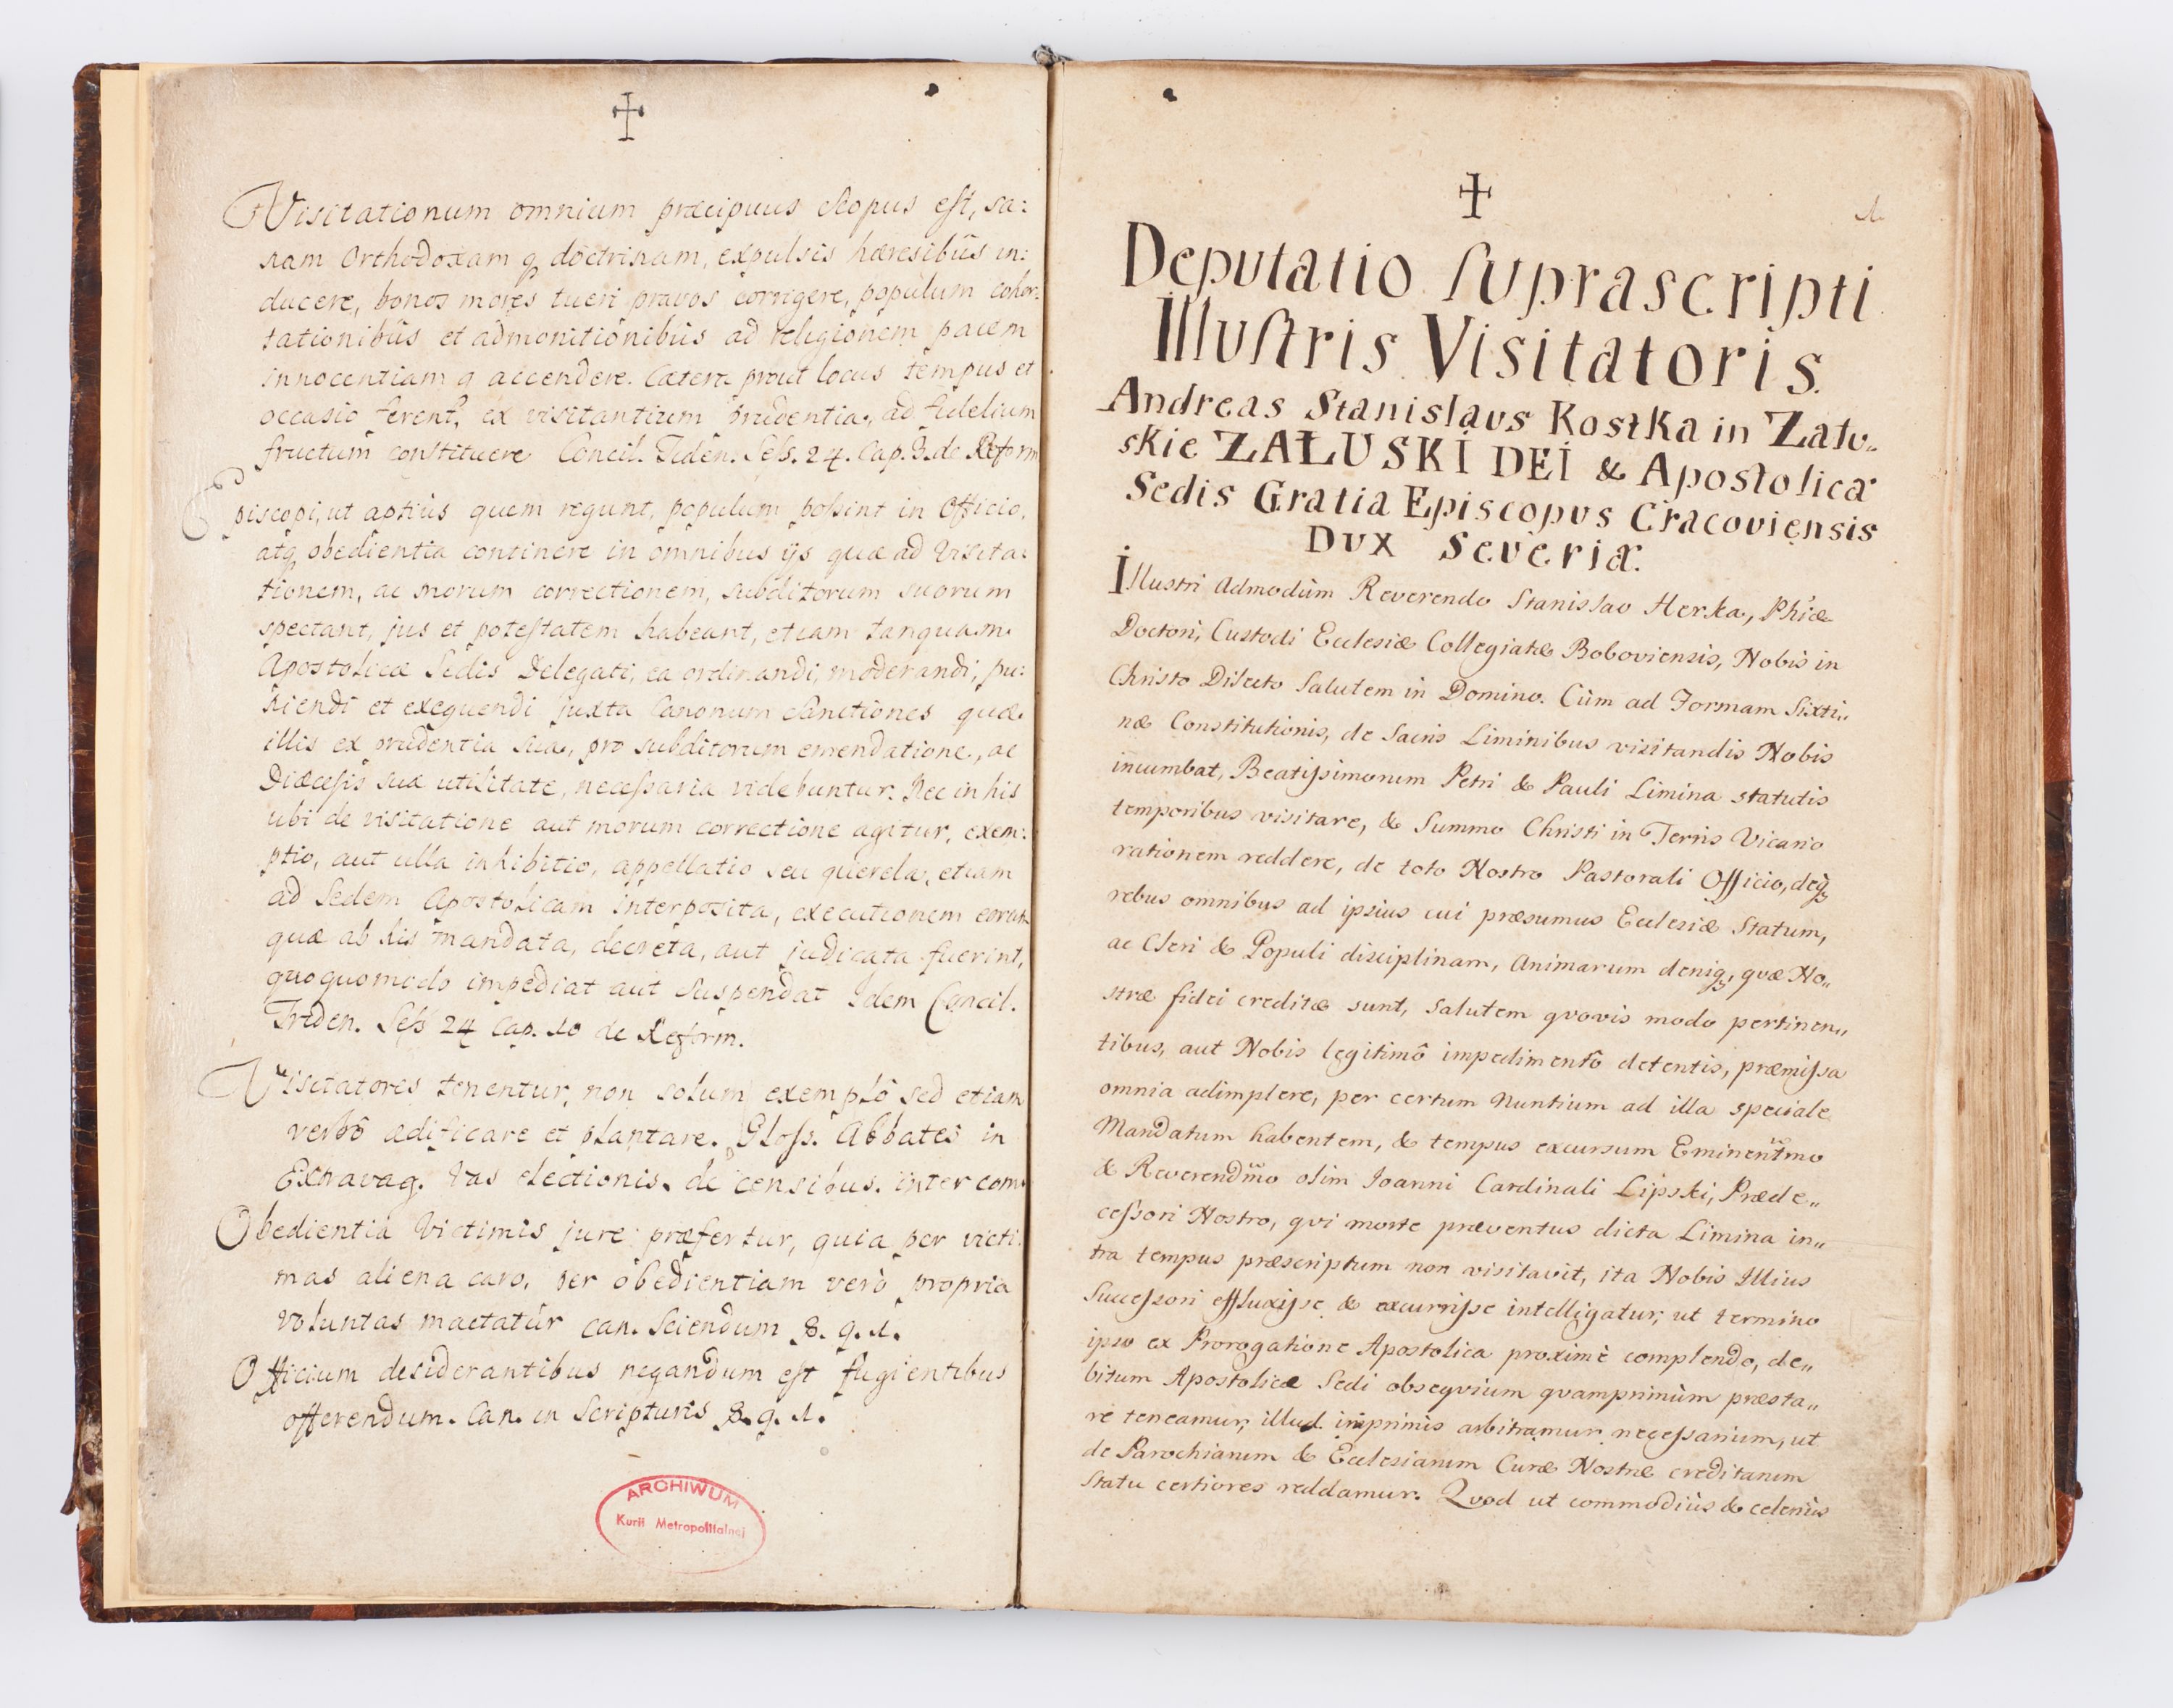 Visitationum omnium præcipuus Scopus est, sa:
nam Orthodoxam q doctrinam, expulsis hæresibus in:
ducere, bonos mores tueri pravos corrigere, populum cohor:
tationibus et admonitionibus ad religionem pacem
innocentiam q accendere. Cætera prout locus tempus et
occasio ferent, ex visitantium prudentia, ad fidelium
fructum constituere Concil. Triden. Sess. 24. Cap. 3. de Reform
Episcopi, ut aptius quem regunt, populum possint in Officio,
atq obedientia continere in omnibus ijs quæ ad Visita:
tionem, ac morum correctionem, subditorum suorum
spectant, jus et potestatem habeant, etiam tanquam
Apostolicæ Sedis Delegati, ea ordinandi, moderandi, pu:
niendi et exequendi juxta Canonum Sanctiones quæ
illis ex prudentia sua, pro subditorum emendatione, ac
Diæcesis suæ utilitate, necessaria videbuntur. Nec in his
ubi de visitatione aut morum correctione agitur, exem:
ptio, aut ulla inhibitio, appellatio seu querela, etiam
ad Sedem Apostolicam interposita, executionem eorum
quæ ab his mandata, decreta, aut judicata fuerint,
quoquomodo impediat aut suspendat Idem Concil.
Triden. Sess 24 Cap. 10 de Reform.
Visitatores tenentur, non solum exemplô sed etiam
verbô ædificare et plantare. Gloss. Abbates in
Extravag. Vas electionis. de censibus. inter com.
Obedientia Victimis jure præfertur, quia per victi:
mas aliena caro, per obedientiam verò propria
voluntas mactatur can. Sciendum 8. q. 1.
Officium desiderantibus negandum est fugientibus
offerendum. Can. in Scripturis 8. q. 1.
ARCHIWUM
Kurii Metropolitalnej
1.
Deputatio suprascripti
Illustris Visitatoris.
Andreas Stanislaus Kostka in Zału„
skie ZAŁUSKI DEI & Apostolicæ
Sedis Gratia Episcopus Cracoviensis
Dux Severiæ.
Illustri Admodùm Reverendo Stanislao Herka, Phiæ
Doctori, Custodi Ecclesiæ Collegiatæ Boboviensis, Nobis in
Christo Dilecto Salutem in Domino. Cùm ad Formam Sixti„
næ Constitutionis, de Sacris Liminibus visitandis Nobis
incumbat, Beatissimorum Petri & Pauli Limina statutis
temporibus visitare, & Summo Christi in Terris Vicario
rationem reddere, de toto Nostro Pastorali Officio, deq
rebus omnibus ad ipsius cui præsumus Ecclesiæ Statum,
ac Cleri & Populi disciplinam, Animarum deniq, quæ No„
stræ fidei creditæ sunt, salutem quovis modo pertinen„
tibus, aut Nobis legitimô impedimentô detentis, præmissa
omnia adimplere, per certum Nuntium ad illa speciale
Mandatum habentem, & tempus excursum Eminentmo
& Reverendmo olim Joanni Cardinali Lipski, Præde„
cessori Nostro, qui morte præventus dicta Limina in„
tra tempus præscriptum non visitavit, ita Nobis Illius
Successori effluxisse & excurrisse intelligatur, ut termino
ipso ex Prorogatione Apostolica proximè complendo, de„
bitum Apostolicæ Sedi obsequium quamprimùm præsta„
re teneamur, illud inprimis arbitramur necessarium, ut
de Parochiarum & Ecclesiarum Curæ Nostræ creditarum
Statu certiores reddamur. Quod ut commodiùs & celeriùs